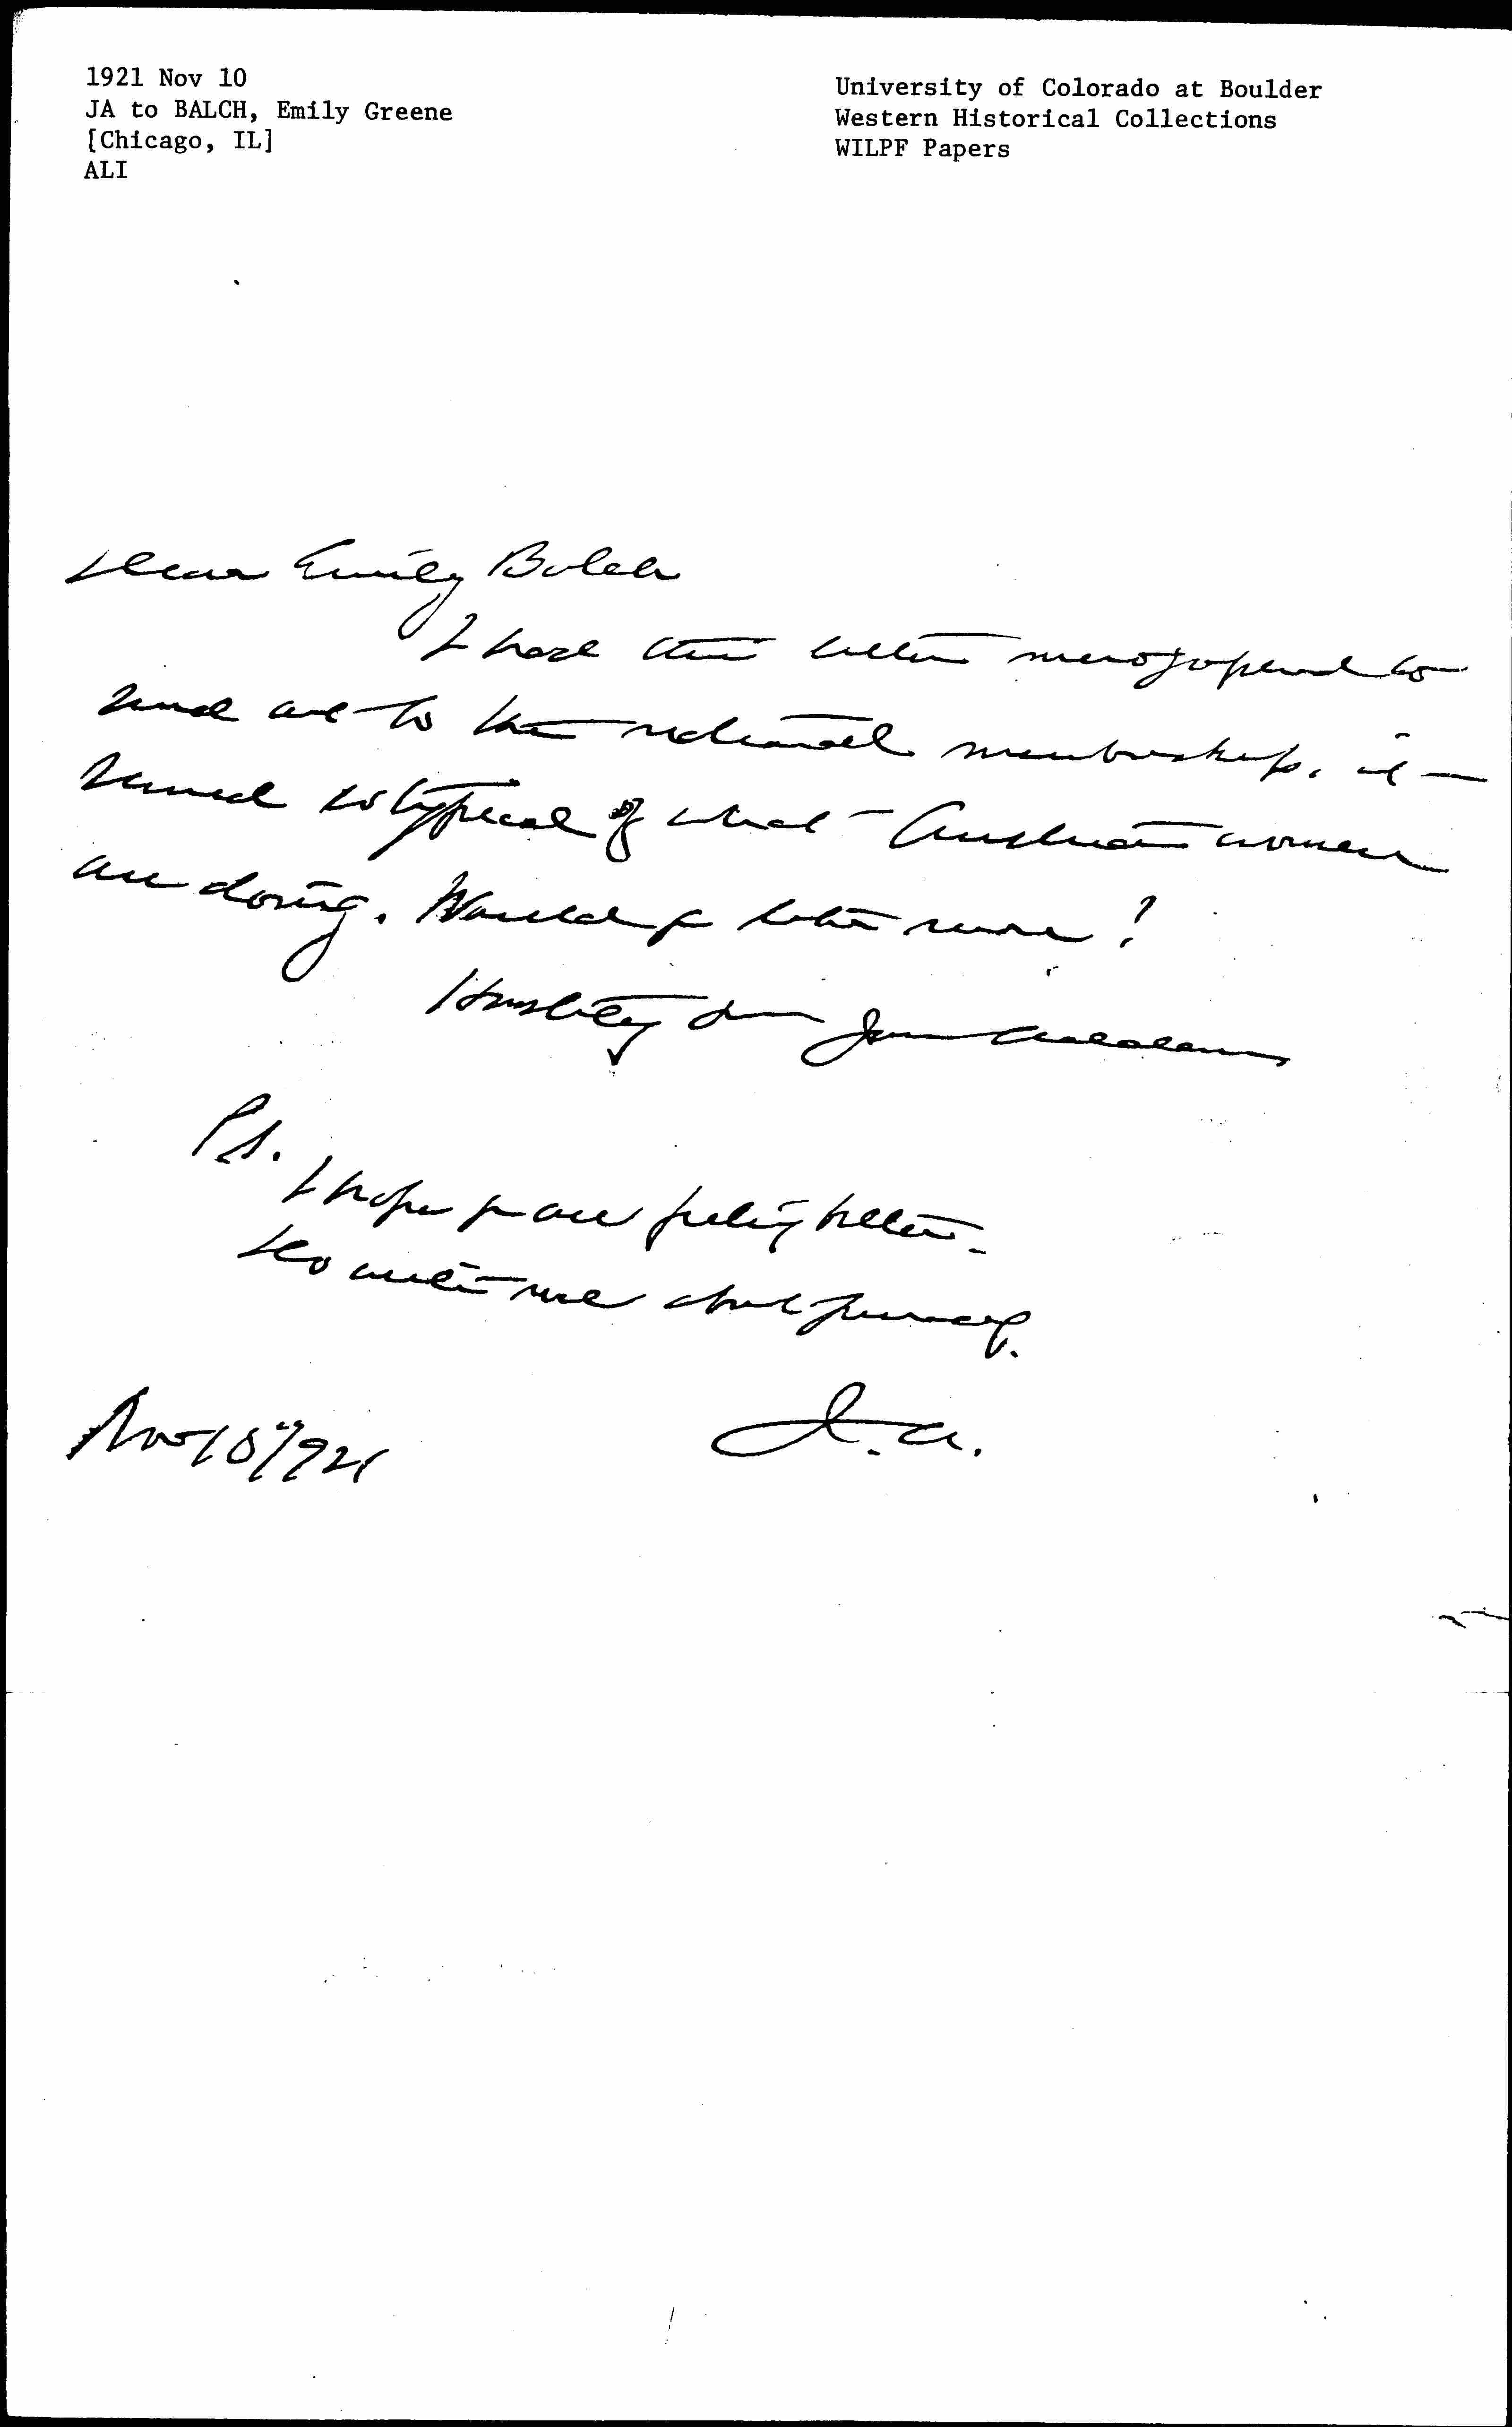 1921 Nov 10
JA to BALCH, Emily Greene
[Chicago, IL]
ALI
University of Colorado at Boulder
Western Historical Collections
WILPF Papers
Dear Emily Balch
I have this letter mimeographed to
send out to the national membership, it
seemed so typical of what Austrian women
are doing. Would you like more?
Hastily yrs Jane Addams
P.S.
I hope you are feeling better.
Do write me about yourself.
Nov 10" 1921
J.A.